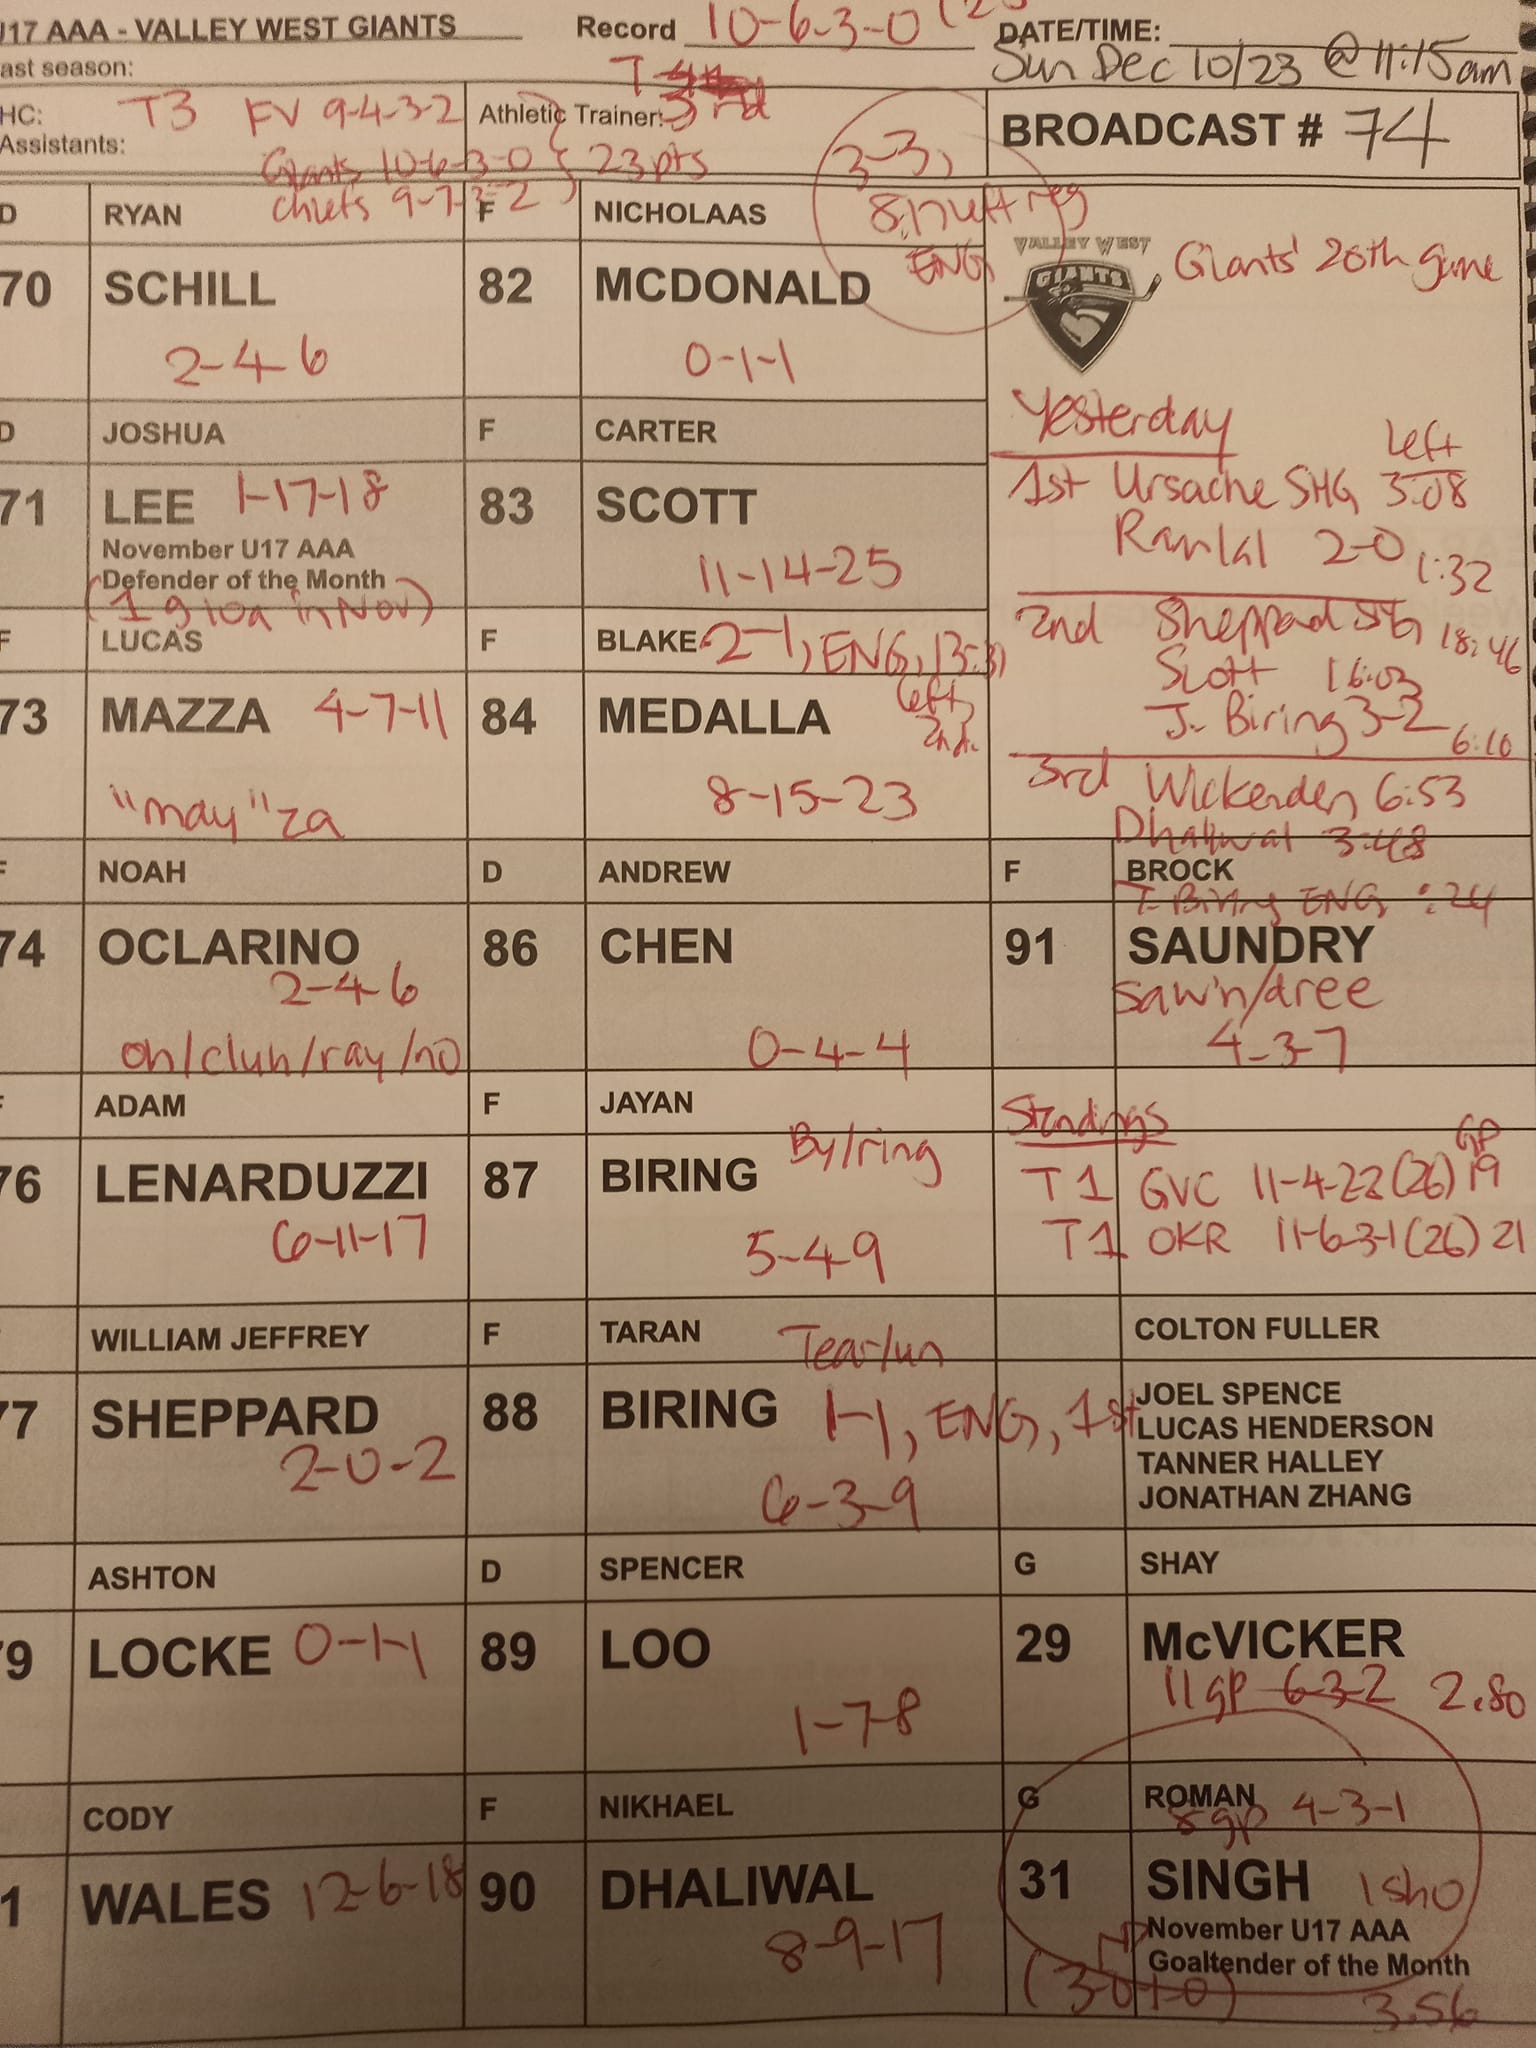 U17 AAA - VALLEY WEST GIANTS Record 10-6-3-0 DATE/TIME:
Sun Dec 10/23 @ 11:15am
ast season:
HC: T3 FV 9-4-3-2 Athletic Trainer: T 3rd
Assistants: Giants 10-6-3-0 23 pts
chiefs 9-7-3-2
BROADCAST # 74
3-3,
8:17 left reg
ENG
D RYAN
70 SCHILL
2-4-6
D JOSHUA
71 LEE 1-17-18
November U17 AAA
Defender of the Month
(1 g 10a in Nov)
F LUCAS
73 MAZZA 4-7-11
"may" za
F NOAH
74 OCLARINO
2-4-6
oh/cluh/ray/no
F ADAM
76 LENARDUZZI
6-11-17
WILLIAM JEFFREY
77 SHEPPARD
2-0-2
ASHTON
79 LOCKE 0-1-1
CODY
1 WALES 12-6-18
F NICHOLAAS
82 MCDONALD
0-1-1
F CARTER
83 SCOTT
11-14-25
F BLAKE 2-1, ENG, 13:31
left,
2nd.
84 MEDALLA
8-15-23
D ANDREW
86 CHEN
0-4-4
F JAYAN
By/ring
87 BIRING
5-4-9
F TARAN Tear/un
88 BIRING 1-1, ENG, 1st
6-3-9
D SPENCER
89 LOO
1-7-8
F NIKHAEL
90 DHALIWAL
8-9-17
VALLEY WEST
GIANTS
Giants' 20th game
Yesterday left
1st Ursache SHG 3:08
2-0 1:32
2nd Sheppard 18:46
Scott 16:03
J. Biring 3-2 6:10
3rd Wickenden 6:53
Dhaliwal 3:48
T. Biring ENG :24
F BROCK
91 SAUNDRY
saw'n/dree
4-3-7
Standings GP
T1 GVC 11-4-2-2 (26) 19
T1 OKR 11-6-3-1 (26) 21
COLTON FULLER
JOEL SPENCE
LUCAS HENDERSON
TANNER HALLEY
JONATHAN ZHANG
G SHAY
29 McVICKER
11gp 6-3-2 2.80
G ROMAN
8gp 4-3-1
31 SINGH 1 sho
November U17 AAA
Goaltender of the Month
(3-0-1-0) 3.56